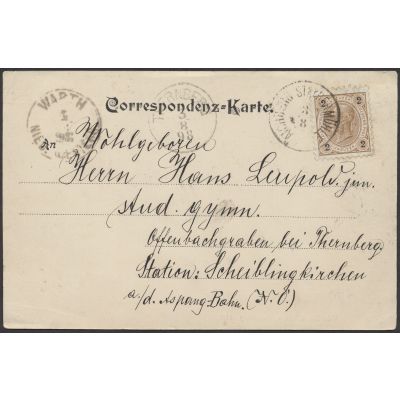 WARTH
Correspondenz-Karte.
2 2
2 2
An
Wohlgeboren
Herrn Hans Leupold jun.
stud. gymn.
Offenbachgraben bei Thernberg.
Station: Scheiblingkirchen
a/d. Aspang-Bahn. (N. Ö.)